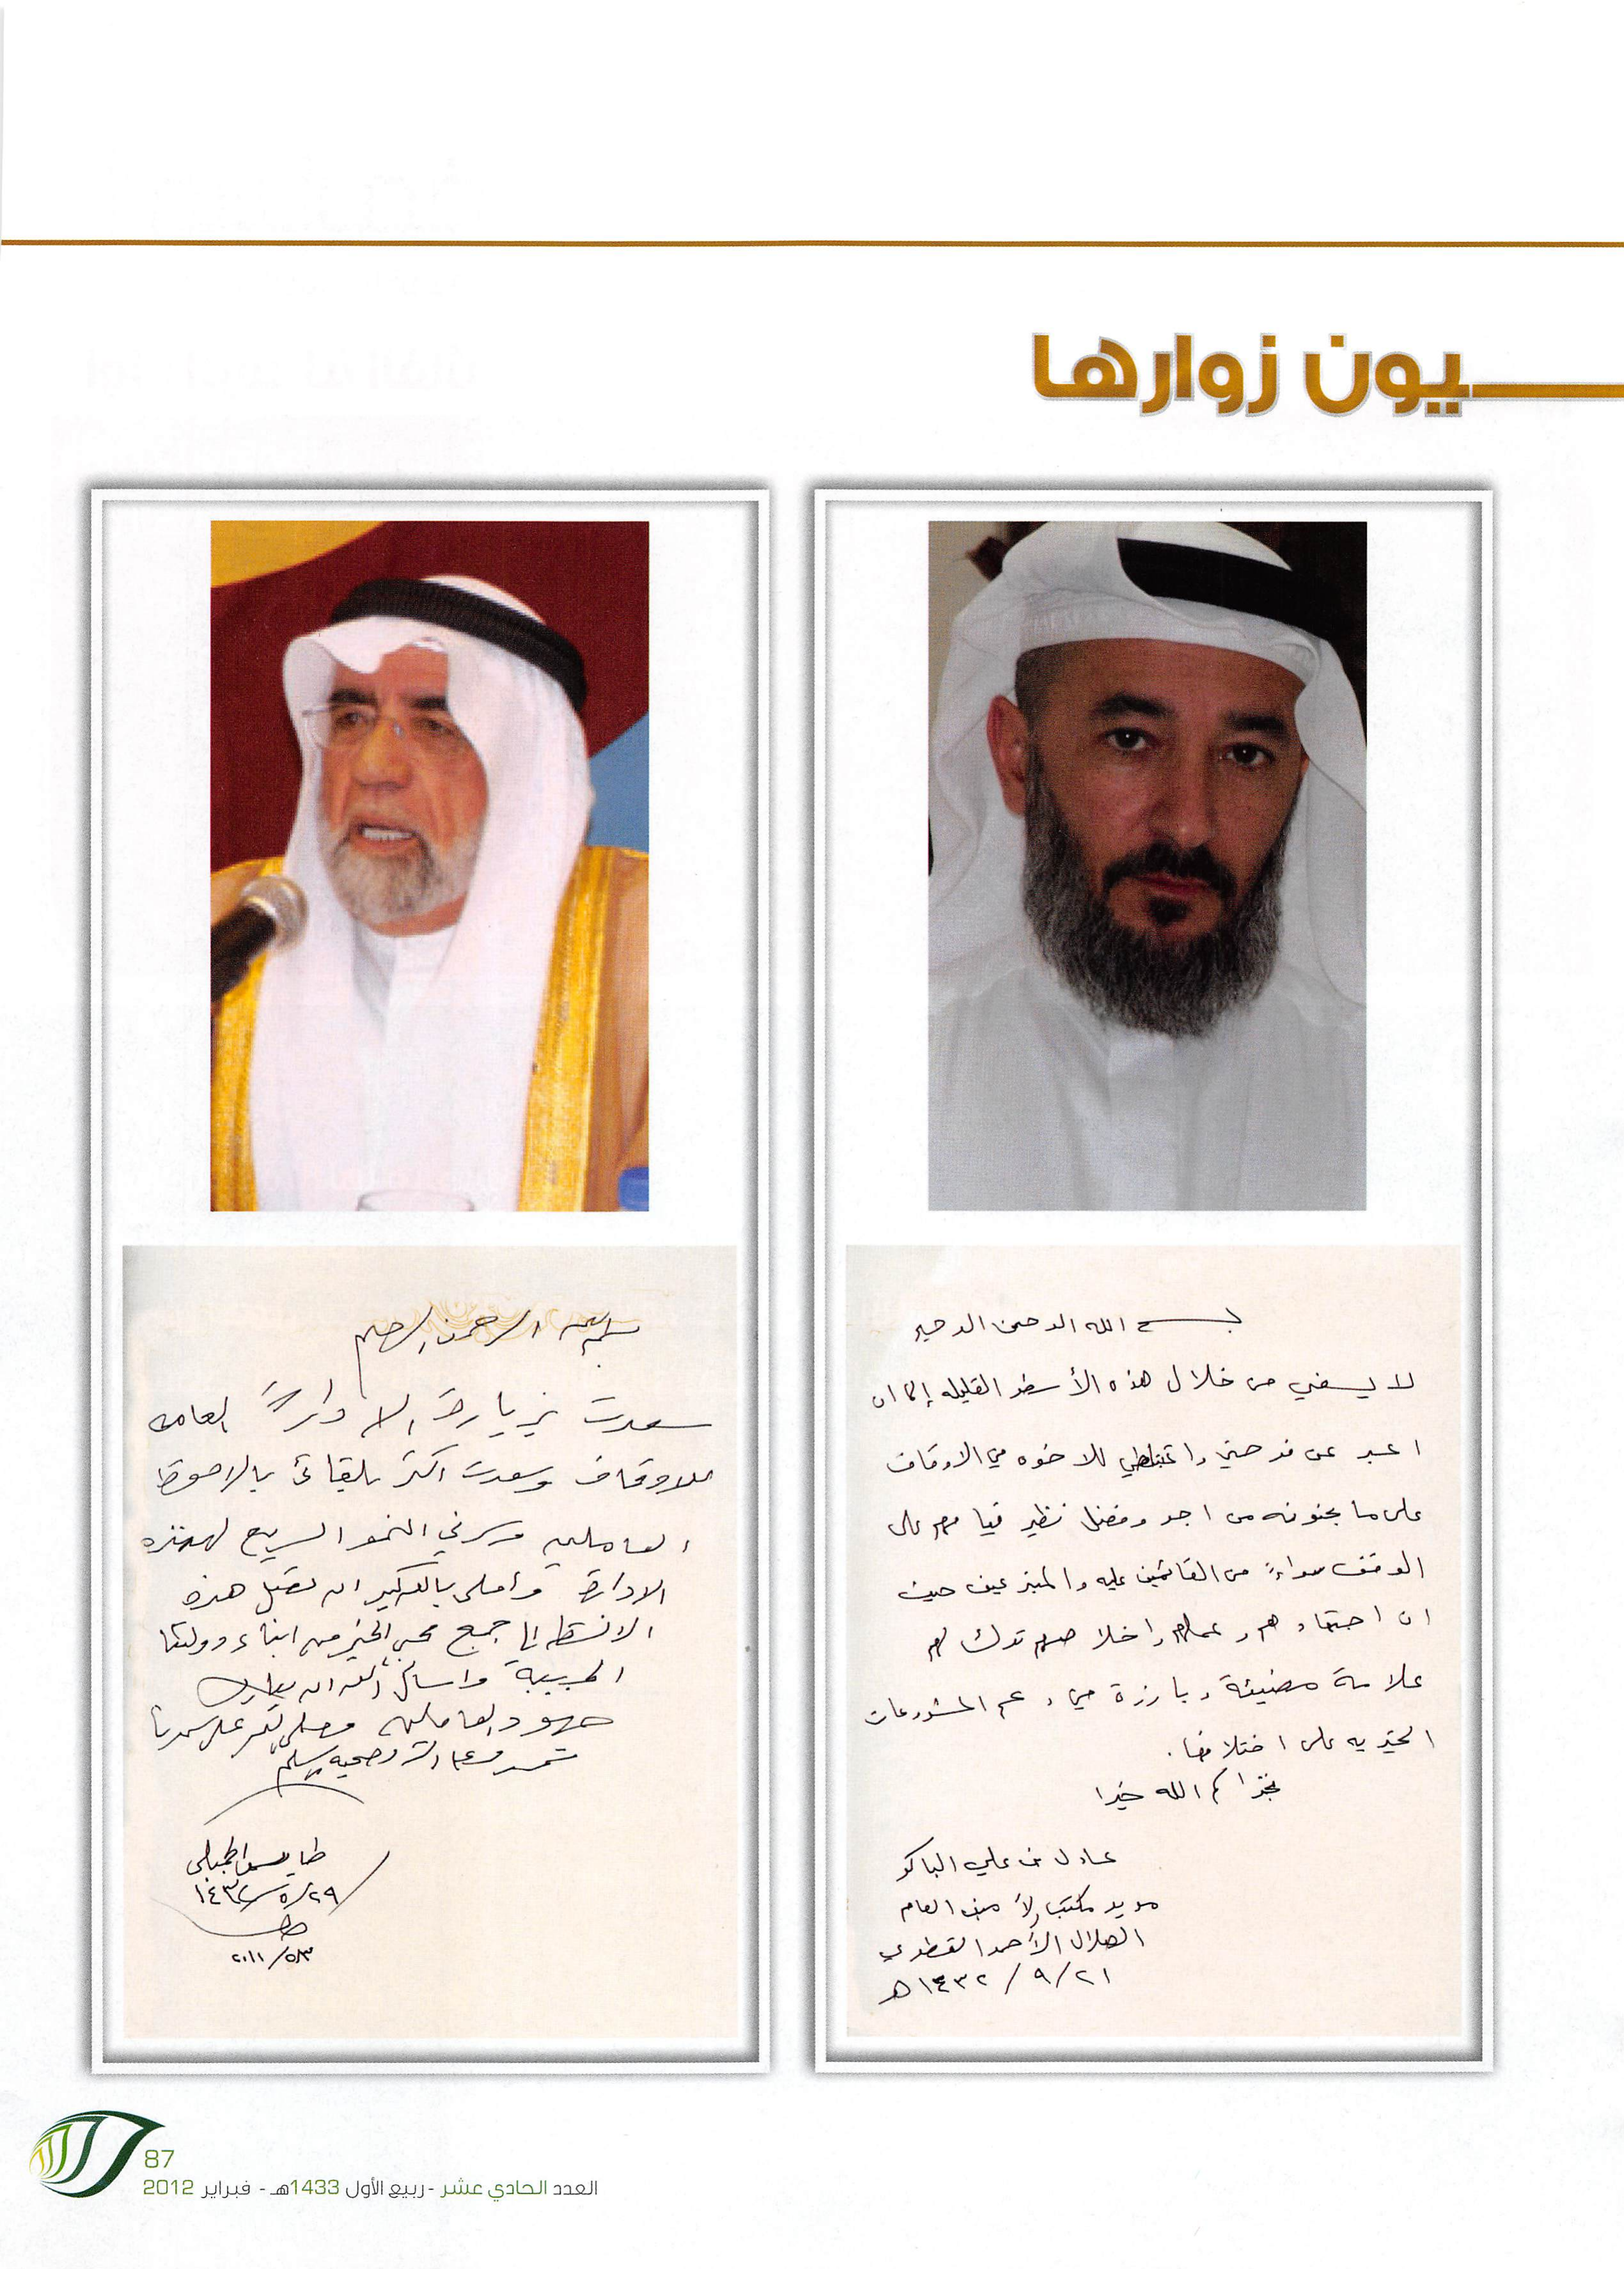 ـيون زوارها
بسم الله الرحمن الرحيم
لا يسعني من خلال هذه الأسطر القليله إلا ان
اعبر عن فرحتي واغتباطي للاخوه في الاوقاف
على ما يجنونه من اجر وفضل نظير قيامهم على
الوقف سواءً من القائمين عليه والمتبرعين حيث
ان اجتهادهم وعملهم واخلاصهم ترك لهم
علامة مضيئة وبارزة في دعم المشروعات
الخيريه على اختلافها.
فجزاكم الله خيرا
عادل بن علي الباكر
مدير مكتب الأمين العام
الهلال الأحمر القطري
٢١/٩/١٤٣٢هـ
بسم الله الرحمن الرحيم
سعدت بزيارة الادارة العامه
للاوقاف وسعدت اكثر بلقائي بالاخوة
العاملين وسرني النمو السريع لهذه
الادارة وأملي بالله كبير ان تصل هذه
الى جمع محبي الخير من ابناء دولتنا
الحبيبة واسأل الله ان يبارك
جهود العاملين وصلى الله على سيدنا
محمد وعلى آله وصحبه وسلم
طايس الجميلي
٢٩/٥/١٤٣٢
87
العدد الحادي عشر - ربيع الأول 1433هـ - فبراير 2012